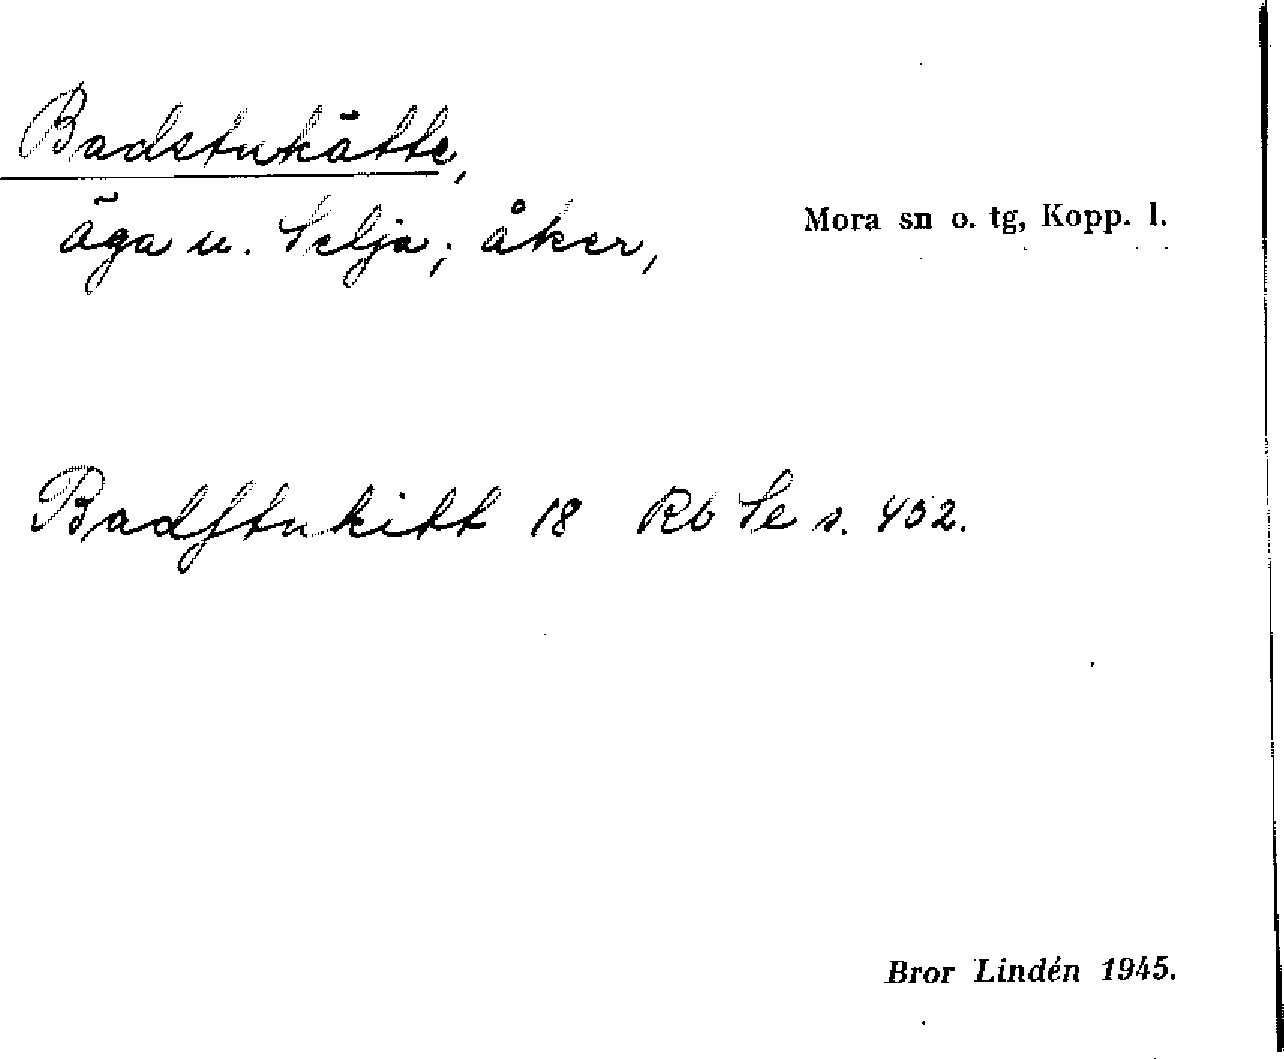 Badstukätte,
äga u. Selja; åker,
Mora sn o. tg, Kopp. l.
Badſtukitt 18 Rb Se s. 452.
Bror Lindén 1945.